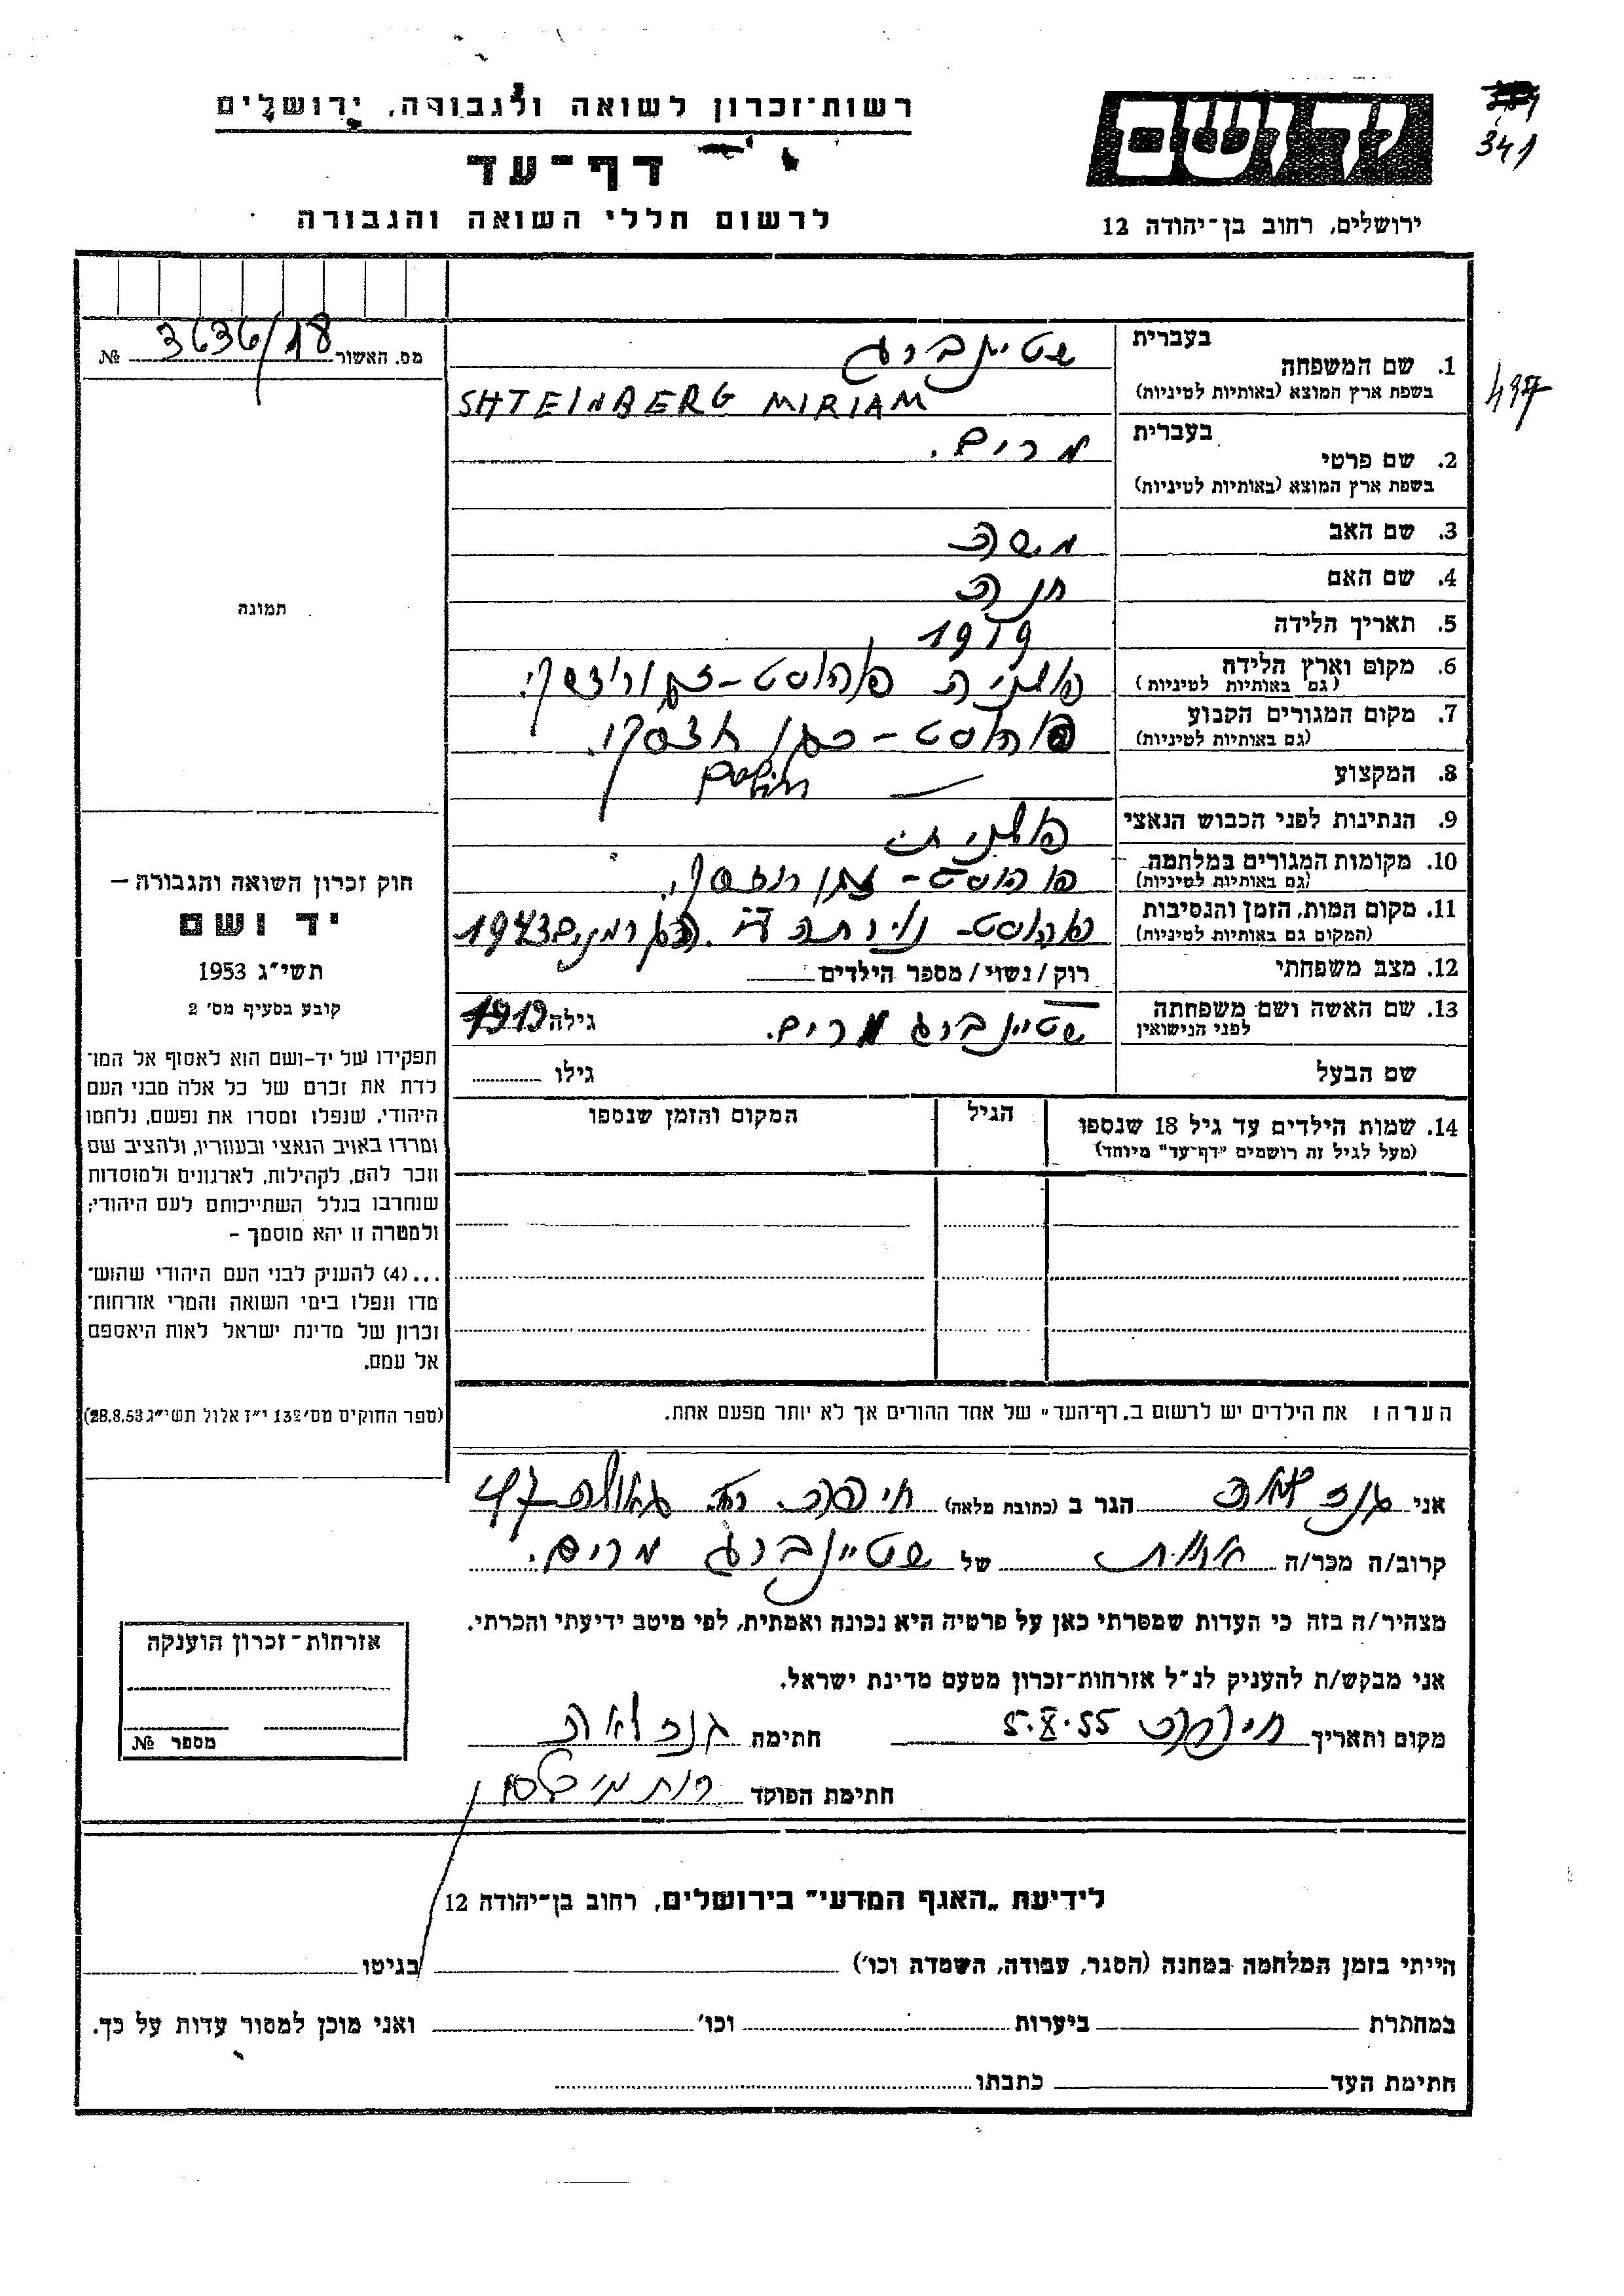 רשות־זכרון לשואה ולגבורה, ירושלים
דף־עד
לרשום חללי השואה והגבורה
ידושם
ירושלים, רחוב בן־יהודה 12
341
497
מס. האשור 3636/18 №
בעברית
1. שם המשפחה שטיינברג
בשפת ארץ המוצא (באותיות לטיניות) SHTEINBERG MIRIAM
בעברית
2. שם פרטי מרים.
בשפת ארץ המוצא (באותיות לטיניות)
3. שם האב משה
4. שם האם חנה
5. תאריך הלידה 1919
6. מקום וארץ הלידה
(גם באותיות לטיניות)
7. מקום המגורים הקבוע
(גם באותיות לטיניות)
8. המקצוע
9. הנתינות לפני הכבוש הנאצי פולנית
10. מקומות המגורים במלחמה
(גם באותיות לטיניות)
11. מקום המות, הזמן והנסיבות 1943
(המקום גם באותיות לטיניות)
12. מצב משפחתי רוק / נשוי / מספר הילדים
13. שם האשה ושם משפחתה שטיינברג מרים. גילה 1919
לפני הנישואין
שם הבעל גילו
14. שמות הילדים עד גיל 18 שנספו הגיל המקום והזמן שנספו
(מעל לגיל זה רושמים "דף־עד" מיוחד)
תמונה
חוק זכרון השואה והגבורה —
יד ושם
תשי"ג 1953
קובע בסעיף מס' 2
תפקידו של יד-ושם הוא לאסוף אל המו־
לדת את זכרם של כל אלה מבני העם
היהודי, שנפלו ומסרו את נפשם, נלחמו
ומרדו באויב הנאצי ובעוזריו, ולהציב שם
וזכר להם, לקהילות, לארגונים ולמוסדות
שנחרבו בגלל השתייכותם לעם היהודי;
ולמטרה זו יהא מוסמך –
...(4) להעניק לבני העם היהודי שהוש־
מדו ונפלו בימי השואה והמרי אזרחות־
זכרון של מדינת ישראל לאות היאספם
אל עמם.
(ספר החוקים מס' 132 י"ז אלול תשי"ג 28.8.53)
הערה: את הילדים יש לרשום ב„דף־העד" של אחד ההורים אך לא יותר מפעם אחת.
אני גנז לאה הגר ב (כתובת מלאה) חיפה. רח. גאולה 47
קרוב/ה מכר/ה אחות של שטיינברג מרים.
מצהיר/ה בזה כי העדות שמסרתי כאן על פרטיה היא נכונה ואמתית, לפי מיטב ידיעתי והכרתי.
אני מבקש/ת להעניק לנ"ל אזרחות־זכרון מטעם מדינת ישראל.
מקום ותאריך חיפה 5.X.55 חתימת גנז לאה
חתימת הפוקד רות
אזרחות־זכרון הוענקה
מספר №
לידיעת „האגף המדעי" בירושלים, רחוב בן־יהודה 12
הייתי בזמן המלחמה במחנה (הסגר, עבודה, השמדה וכו') בגיטו
במחתרת ביערות וכו' ואני מוכן למסור עדות על כך.
חתימת העד כתבתו